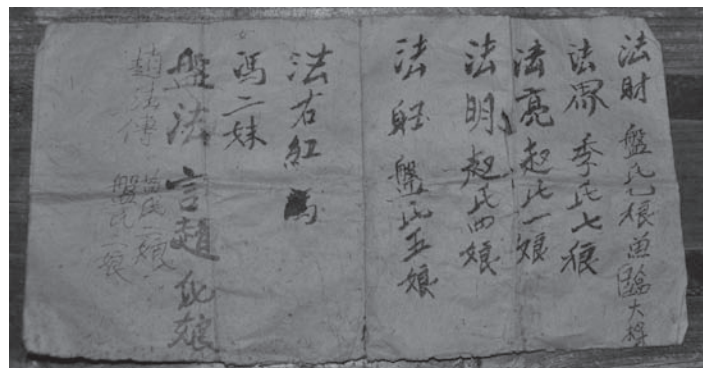 法財 盤氏 娘 臨大
法 季氏七娘
法亮 赵氏一娘
法明 赵氏四娘
法 盤氏五娘
法右紅
馮二妹
盤法言趙氏娘
趙法傳 氏二娘
盤氏二娘